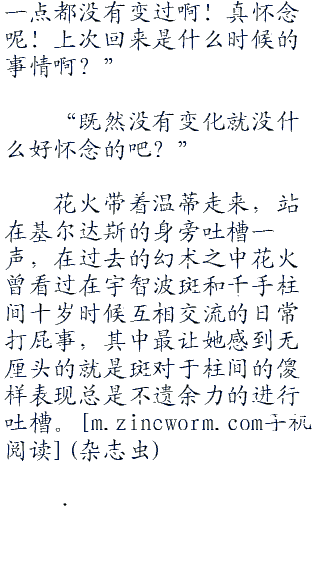 一点都没有变过啊！真怀念
呢！上次回来是什么时候的
事情啊？”
“既然没有变化就没什
么好怀念的吧？”
花火带着温蒂走来，站
在基尔达斯的身旁吐槽一
声，在过去的幻术之中花火
曾看过在宇智波斑和千手柱
间十岁时候互相交流的日常
打屁事，其中最让她感到无
厘头的就是斑对于柱间的傻
样表现总是不遗余力的进行
吐槽。[m.zincworm.com手机
阅读](杂志虫)
.